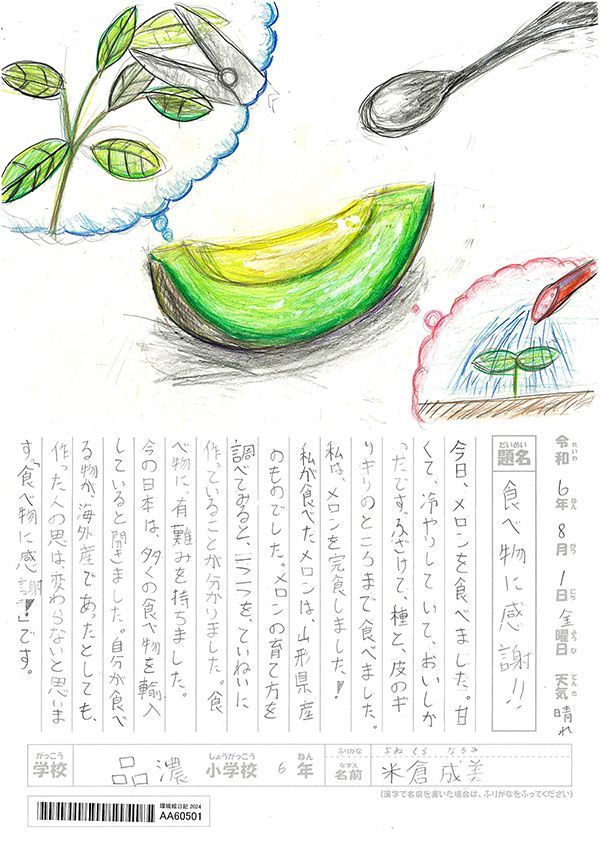 令和6年8月1日金曜日 天気晴れ
れいわ ねん がつ にち ようび てんき
だいめい
題名 食べ物に感謝!!
今日、メロンを食べました。甘
くて、冷やりしていて、おいしか
ったです。ふざけて、種と、皮のギ
リギリのところまで食べました。
私は、メロンを完食しました!
私が食べたメロンは、山形県産
のものでした。メロンの育て方を
調べてみると、一つ一つを、ていねいに
作っていることが分かりました。食
べ物に、有難みを持ちました。
今の日本は、多くの食べ物を輸入
していると聞きました。自分が食べ
る物が、海外産であったとしても、
作った人の思は、変わらないと思いま
す。「食べ物に感謝!」です。
がっこう しょうがっこう ねん ふりがな よねくら なるみ
学校 品濃 小学校 6年 なまえ 名前 米倉成美
(漢字で名前を書いた場合は、ふりがなをふってください)
環境絵日記 2024
AA60501